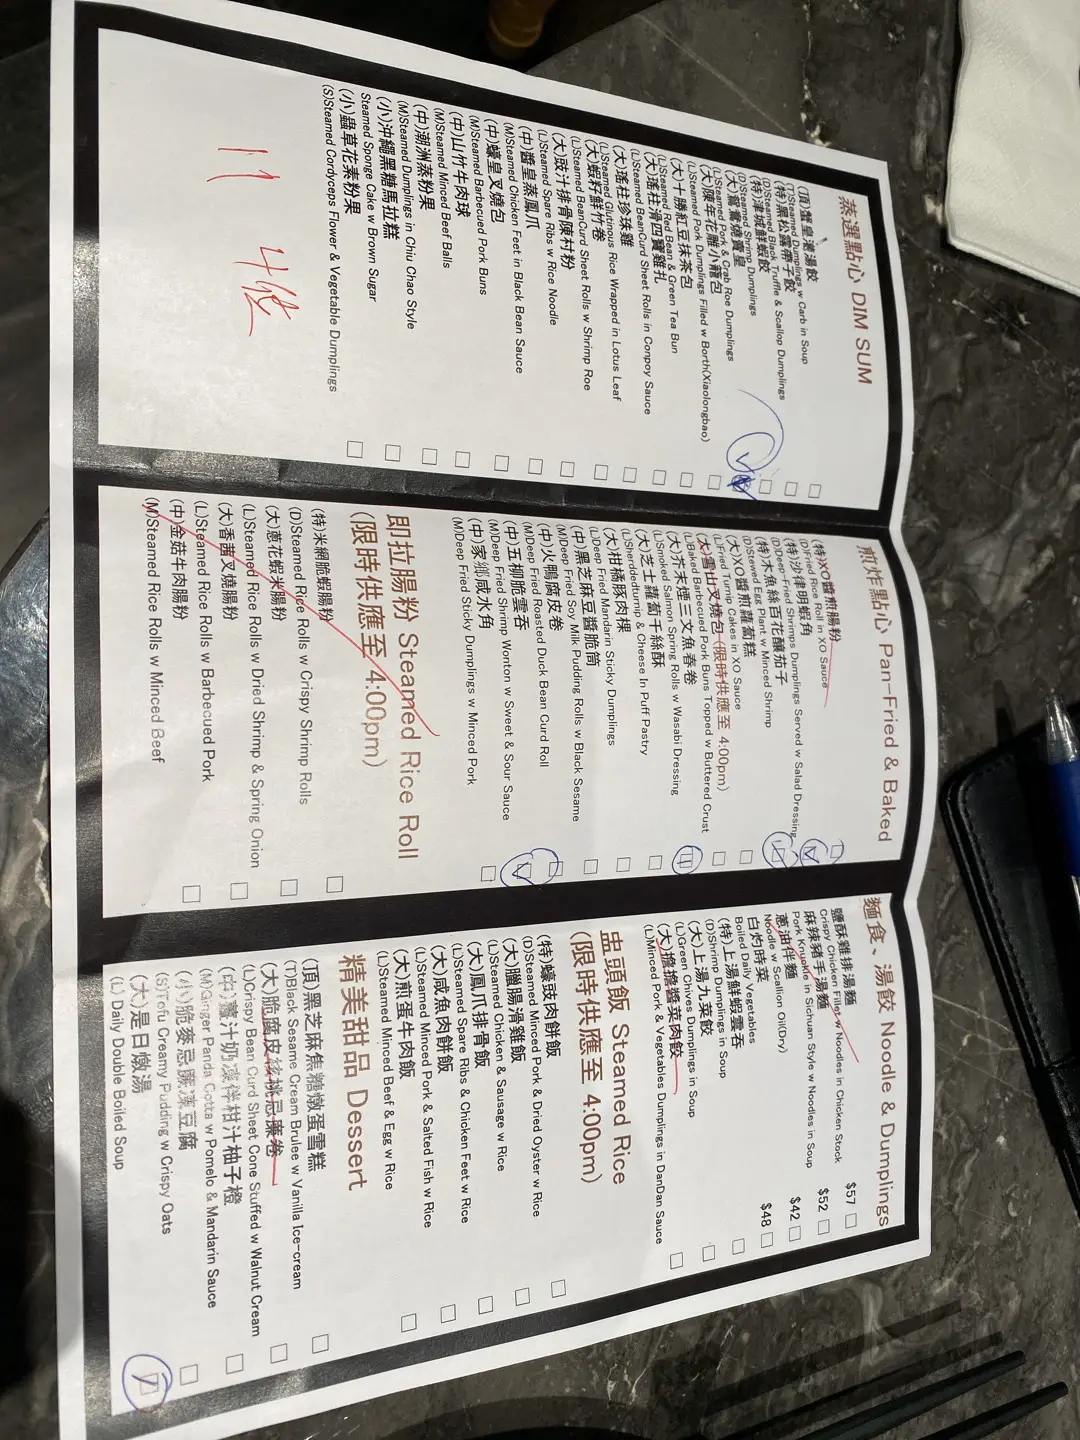 蒸選點心 DIM SUM
(頂)蟹皇湯餃
(T)Steamed Dumplings w Carb in Soup
(特)黑松露帶子餃
(D)Steamed Black Truffle & Scallop Dumplings
(特)津城鮮蝦餃
(D)Steamed Shrimp Dumplings
(大)鴛鴦燒賣皇
(L)Steamed Pork & Crab Roe Dumplings
(大)陳年花雕小籠包
(L)Steamed Pork Dumplings Filled w Borth(Xiaolongbao)
(大)十勝紅豆抹茶包
(L)Steamed Red Bean & Green Tea Bun
(大)瑤柱滑四寶雞扎
(L)Steamed BeanCurd Sheet Rolls in Conpoy Sauce
(大)瑤柱珍珠雞
(L)Steamed Glutinous Rice Wrapped in Lotus Leaf
(大)蝦籽鮮竹卷
(L)Steamed BeanCurd Sheet Rolls w Shrimp Roe
(大)豉汁排骨陳村粉
(L)Steamed Spare Ribs w Rice Noodle
(中)醬皇蒸鳳爪
(M)Steamed Chicken Feet in Black Bean Sauce
(中)蠔皇叉燒包
(M)Steamed Barbecued Pork Buns
(中)山竹牛肉球
(M)Steamed Minced Beef Balls
(中)潮洲蒸粉果
(M)Steamed Dumplings in Chiu Chao Style
(小)沖繩黑糖馬拉糕
Steamed Sponge Cake w Brown Sugar
(小)蟲草花素粉果
(S)Steamed Cordyceps Flower & Vegetable Dumplings
11 4位
煎炸點心 Pan-Fried & Baked
(特)XO醬煎腸粉
(D)Fried Rice Roll in XO Sauce
(特)沙律明蝦角
(D)Deep-Fried Shrimps Dumplings Served w Salad Dressing
(特)木魚絲百花釀茄子
(D)Stewed Egg Plant w Minced Shrimp
(大)XO醬煎蘿蔔糕
(L)Fried Turnip Cakes in XO Sauce
(大)雪山叉燒包 (限時供應至 4:00pm)
(L)Baked Barbecued Pork Buns Topped w Buttered Crust
(大)芥末煙三文魚春卷
(L)Smoked Salmon Spring Rolls w Wasabi Dressing
(大)芝士蘿蔔千絲酥
(L)Sherddedturnip & Cheese In Puff Pastry
(大)柑橘豚肉粿
(L)Deep Fried Mandarin Sticky Dumplings
(中)黑芝麻豆醬脆筒
(M)Deep Fried Soy Milk Pudding Rolls w Black Sesame
(中)火鴨腐皮卷
(M)Deep Fried Roasted Duck Bean Curd Roll
(中)五柳脆雲吞
(M)Deep Fried Shrimp Wonton w Sweet & Sour Sauce
(中)家鄉咸水角
(M)Deep Fried Sticky Dumplings w Minced Pork
即拉腸粉 Steamed Rice Roll
(限時供應至 4:00pm)
(特)米網脆蝦腸粉
(D)Steamed Rice Rolls w Crispy Shrimp Rolls
(大)蔥花蝦米腸粉
(L)Steamed Rice Rolls w Dried Shrimp & Spring Onion
(大)香茜叉燒腸粉
(L)Steamed Rice Rolls w Barbecued Pork
(中)金菇牛肉腸粉
(M)Steamed Rice Rolls w Minced Beef
麵食、湯餃 Noodle & Dumplings
鹽酥雞排湯麵 $57
Crispy Chicken Fillet w Noodles in Chicken Stock
麻辣豬手湯麵 $52
Pork Knuckle in Sichuan Style w Noodles in Soup
蔥油伴麵 $42
Noodle w Scallion Oil(Dry)
白灼時菜 $48
Boiled Daily Vegetables
(特)上湯鮮蝦雲吞
(D)Shrimp Dumplings in Soup
(大)上湯九菜餃
(L)Green Chives Dumplings in Soup
(大)擔擔醬菜肉餃
(L)Minced Pork & Vegetables Dumplings in DanDan Sauce
盅頭飯 Steamed Rice
(限時供應至 4:00pm)
(特)蠔豉肉餅飯
(D)Steamed Minced Pork & Dried Oyster w Rice
(大)臘腸滑雞飯
(L)Steamed Chicken & Sausage w Rice
(大)鳳爪排骨飯
(L)Steamed Spare Ribs & Chicken Feet w Rice
(大)咸魚肉餅飯
(L)Steamed Minced Pork & Salted Fish w Rice
(大)煎蛋牛肉飯
(L)Steamed Minced Beef & Egg w Rice
精美甜品 Dessert
(頂)黑芝麻焦糖燉蛋雪糕
(T)Black Sesame Cream Brulee w Vanilla Ice-cream
(大)脆腐皮核桃忌廉卷
(L)Crispy Bean Curd Sheet Cone Stuffed w Walnut Cream
(中)薑汁奶凍伴柑汁柚子橙
(M)Ginger Panda Cotta w Pomelo & Mandarin Sauce
(小)脆麥忌廉凍豆腐
(S)Tofu Creamy Pudding w Crispy Oats
(大)是日燉湯
(L) Daily Double Boiled Soup